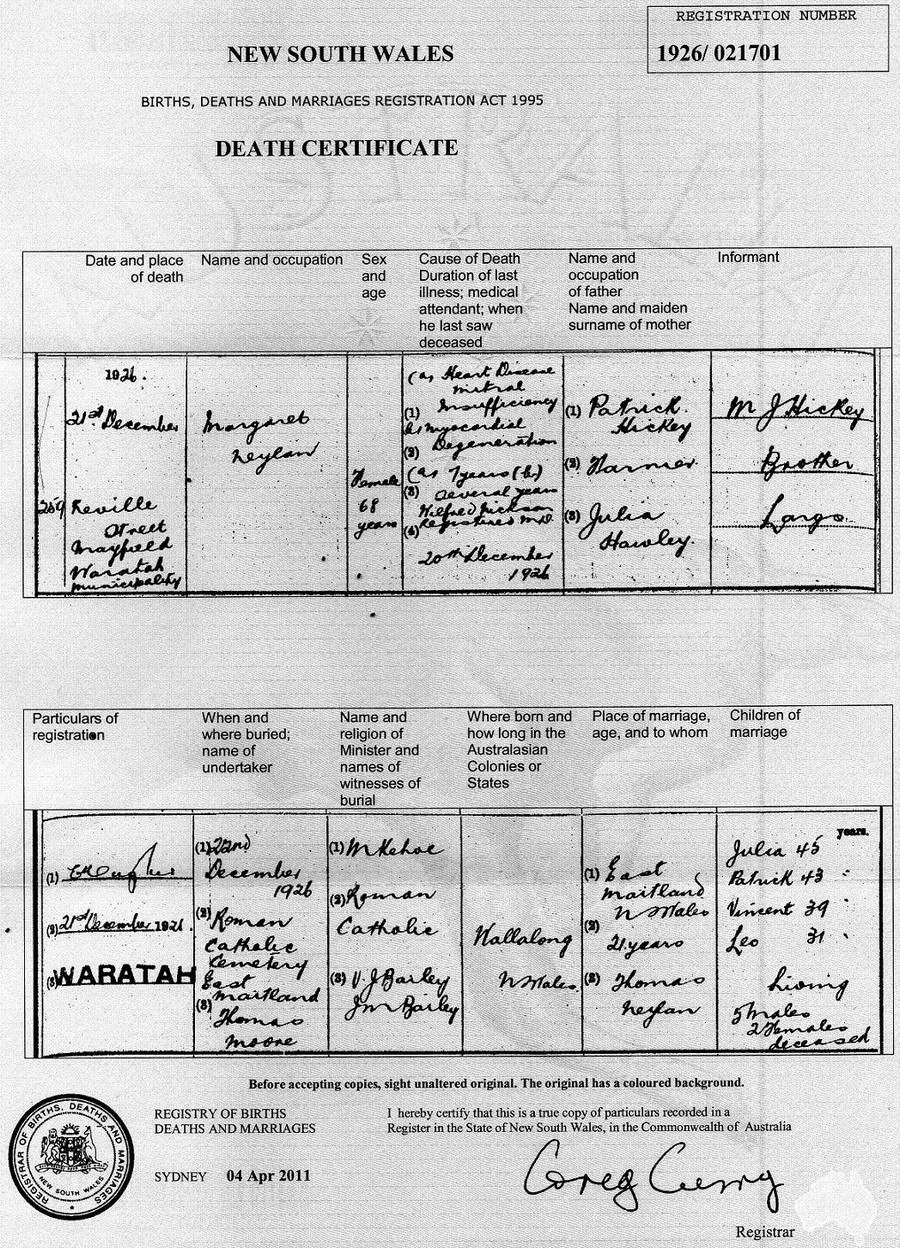 REGISTRATION NUMBER
1926/ 021701
NEW SOUTH WALES
BIRTHS, DEATHS AND MARRIAGES REGISTRATION ACT 1995
DEATH CERTIFICATE
Date and place
of death
Name and occupation
Sex
and
age
Cause of Death
Duration of last
illness; medical
attendant; when
he last saw
deceased
Name and
occupation
of father
Name and maiden
surname of mother
Informant
259
1926.
21st December
Neville
Street
Mayfield
Waratah
Municipality
Margaret
Neylan
Female
68
years
(a) Heart Disease
mitral
(1) Insufficiency
(b) Myocardial
(2) Degeneration
(a) 7 years (b)
(3) several years
Wilfred
(4) Registered M.D.
20th December
1926
(1) Patrick
Hickey
(2) Farmer
(3) Julia
Hawley
M J Hickey
Brother
Largs
Particulars of
registration
When and
where buried;
name of
undertaker
Name and
religion of
Minister and
names of
witnesses of
burial
Where born and
how long in the
Australasian
Colonies or
States
Place of marriage,
age, and to whom
Children of
marriage
(1)
(2) 21st December 1926.
(3) WARATAH
(1) 22nd
December
1926
(2) Roman
Catholic
Cemetery
East
Maitland
(3) Thomas
Moore
(1) M Kehoe
(2) Roman
Catholic
(3) V. J Bailey
J M Bailey
Wallalong
N S Wales.
(1) East
Maitland
N S Wales
(2)
21 years
(3) Thomas
Neylan
years.
Julia 45
Patrick 43 "
Vincent 39 "
Leo 31 "
Living
5 Males
2 Females
deceased
Before accepting copies, sight unaltered original. The original has a coloured background.
REGISTRAR OF BIRTHS, DEATHS AND MARRIAGES
NEW SOUTH WALES
REGISTRY OF BIRTHS
DEATHS AND MARRIAGES
SYDNEY 04 Apr 2011
I hereby certify that this is a true copy of particulars recorded in a
Register in the State of New South Wales, in the Commonwealth of Australia
Greg Curry
Registrar